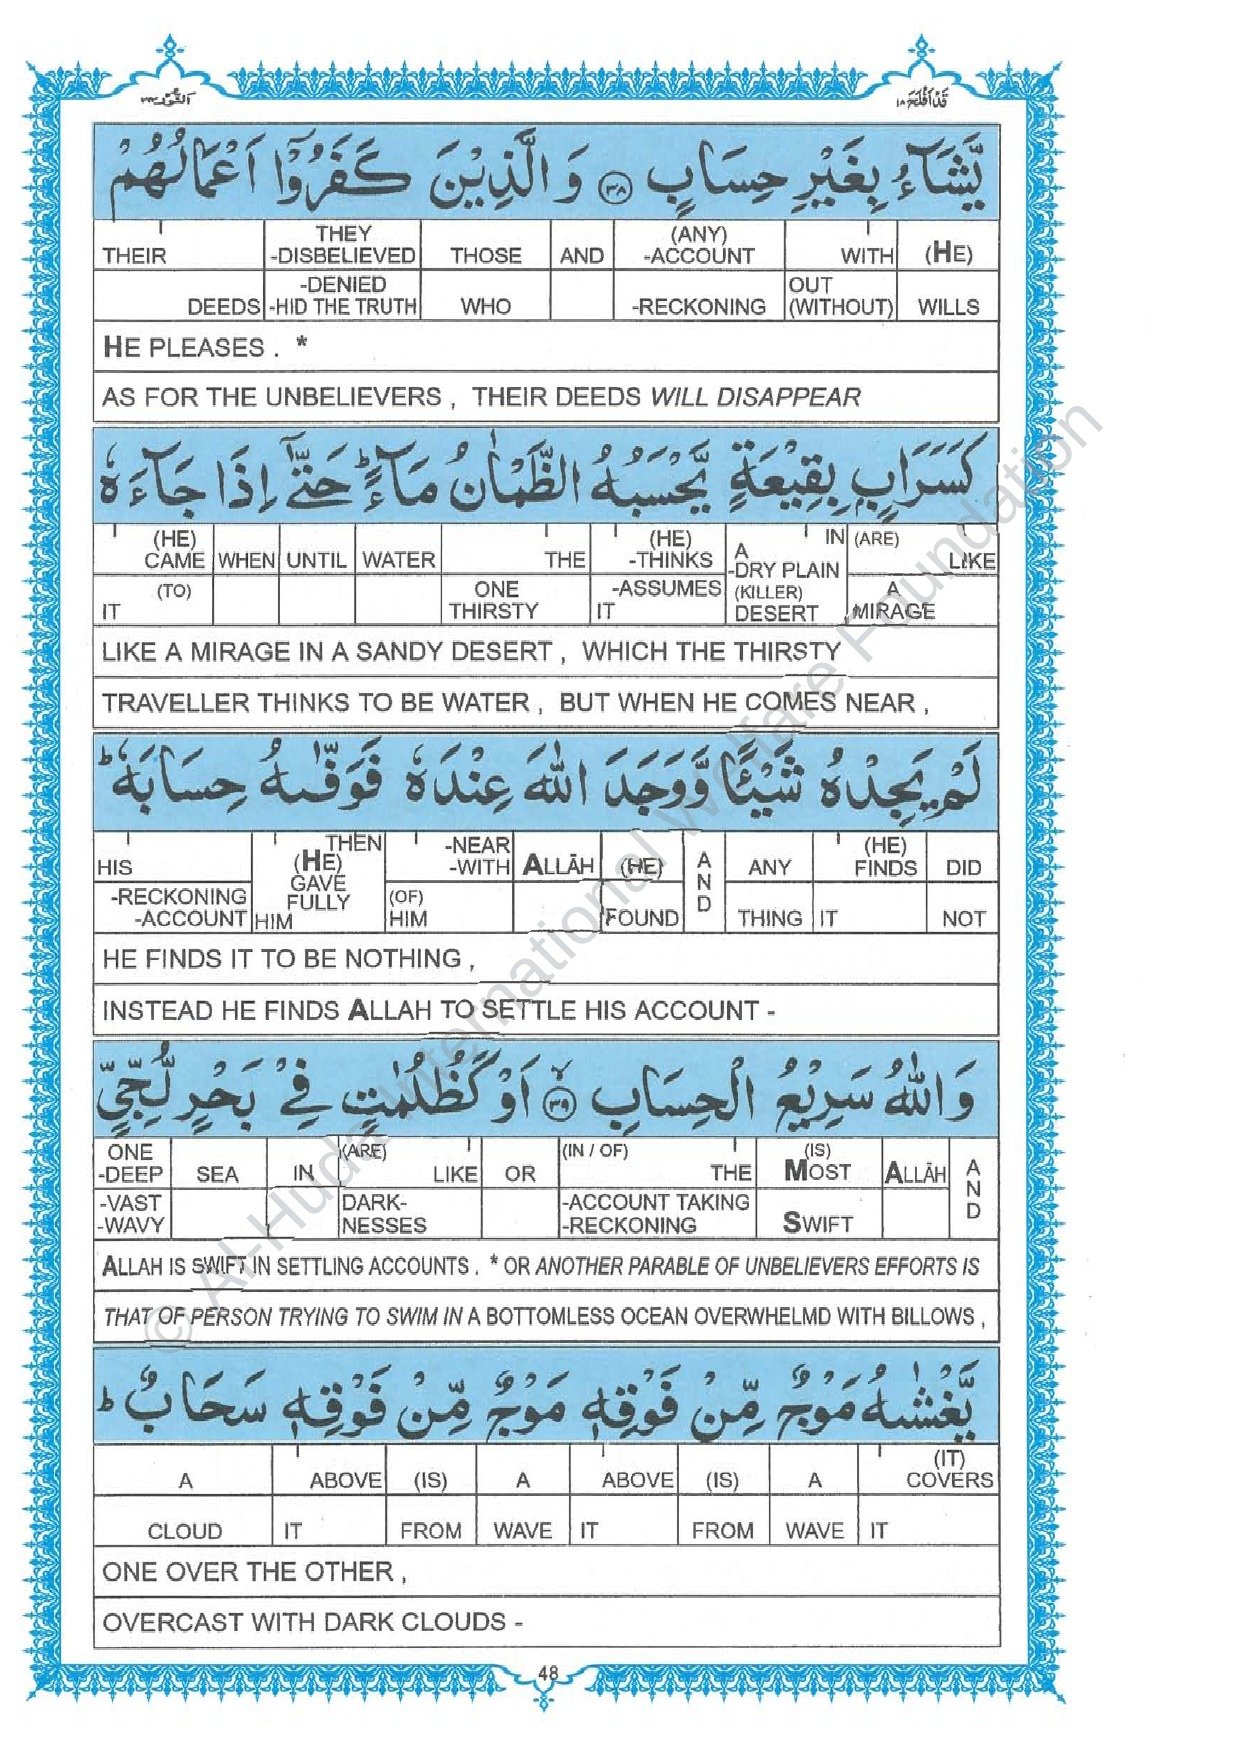 النور ٢٤
قد افلح ١٨
يَّشَآءُ بِغَيْرِ حِسَابٍ ٣٨ وَ الَّذِيْنَ كَفَرُوْٓا اَعْمَالُهُمْ
THEIR THEY -DISBELIEVED THOSE AND (ANY) -ACCOUNT WITH (HE)
DEEDS -DENIED -HID THE TRUTH WHO -RECKONING OUT (WITHOUT) WILLS
HE PLEASES . *
AS FOR THE UNBELIEVERS , THEIR DEEDS WILL DISAPPEAR
كَسَرَابٍۭ بِقِيْعَةٍ يَّحْسَبُهُ الظَّمْاٰنُ مَآءًؕ حَتّٰٓى اِذَا جَآءَهٗ
(HE) CAME WHEN UNTIL WATER THE (HE) -THINKS A -DRY PLAIN IN (ARE) LIKE
IT (TO) ONE THIRSTY -ASSUMES IT (KILLER) DESERT A MIRAGE
LIKE A MIRAGE IN A SANDY DESERT , WHICH THE THIRSTY
TRAVELLER THINKS TO BE WATER , BUT WHEN HE COMES NEAR ,
لَمْ يَجِدْهُ شَيْـًٔا وَّوَجَدَ اللّٰهَ عِنْدَهٗ فَوَفّٰىهُ حِسَابَهٗؕ
HIS THEN (HE) GAVE FULLY -NEAR -WITH ALLĀH (HE) AND ANY (HE) FINDS DID
-RECKONING -ACCOUNT HIM (OF) HIM FOUND THING IT NOT
HE FINDS IT TO BE NOTHING ,
INSTEAD HE FINDS ALLAH TO SETTLE HIS ACCOUNT -
وَاللّٰهُ سَرِيْعُ الْحِسَابِ ٣٩ اَوْ كَظُلُمٰتٍ فِيْ بَحْرٍ لُّجِّيٍّ
ONE -DEEP SEA IN (ARE) LIKE OR (IN / OF) THE (IS) MOST ALLĀH AND
-VAST -WAVY DARK- NESSES -ACCOUNT TAKING -RECKONING SWIFT
ALLAH IS SWIFT IN SETTLING ACCOUNTS . * OR ANOTHER PARABLE OF UNBELIEVERS EFFORTS IS
THAT OF PERSON TRYING TO SWIM IN A BOTTOMLESS OCEAN OVERWHELMD WITH BILLOWS ,
يَّغْشٰىهُ مَوْجٌ مِّنْ فَوْقِهٖ مَوْجٌ مِّنْ فَوْقِهٖ سَحَابٌؕ
A ABOVE (IS) A ABOVE (IS) A (IT) COVERS
CLOUD IT FROM WAVE IT FROM WAVE IT
ONE OVER THE OTHER ,
OVERCAST WITH DARK CLOUDS -
48
© Al-Huda International Welfare Foundation